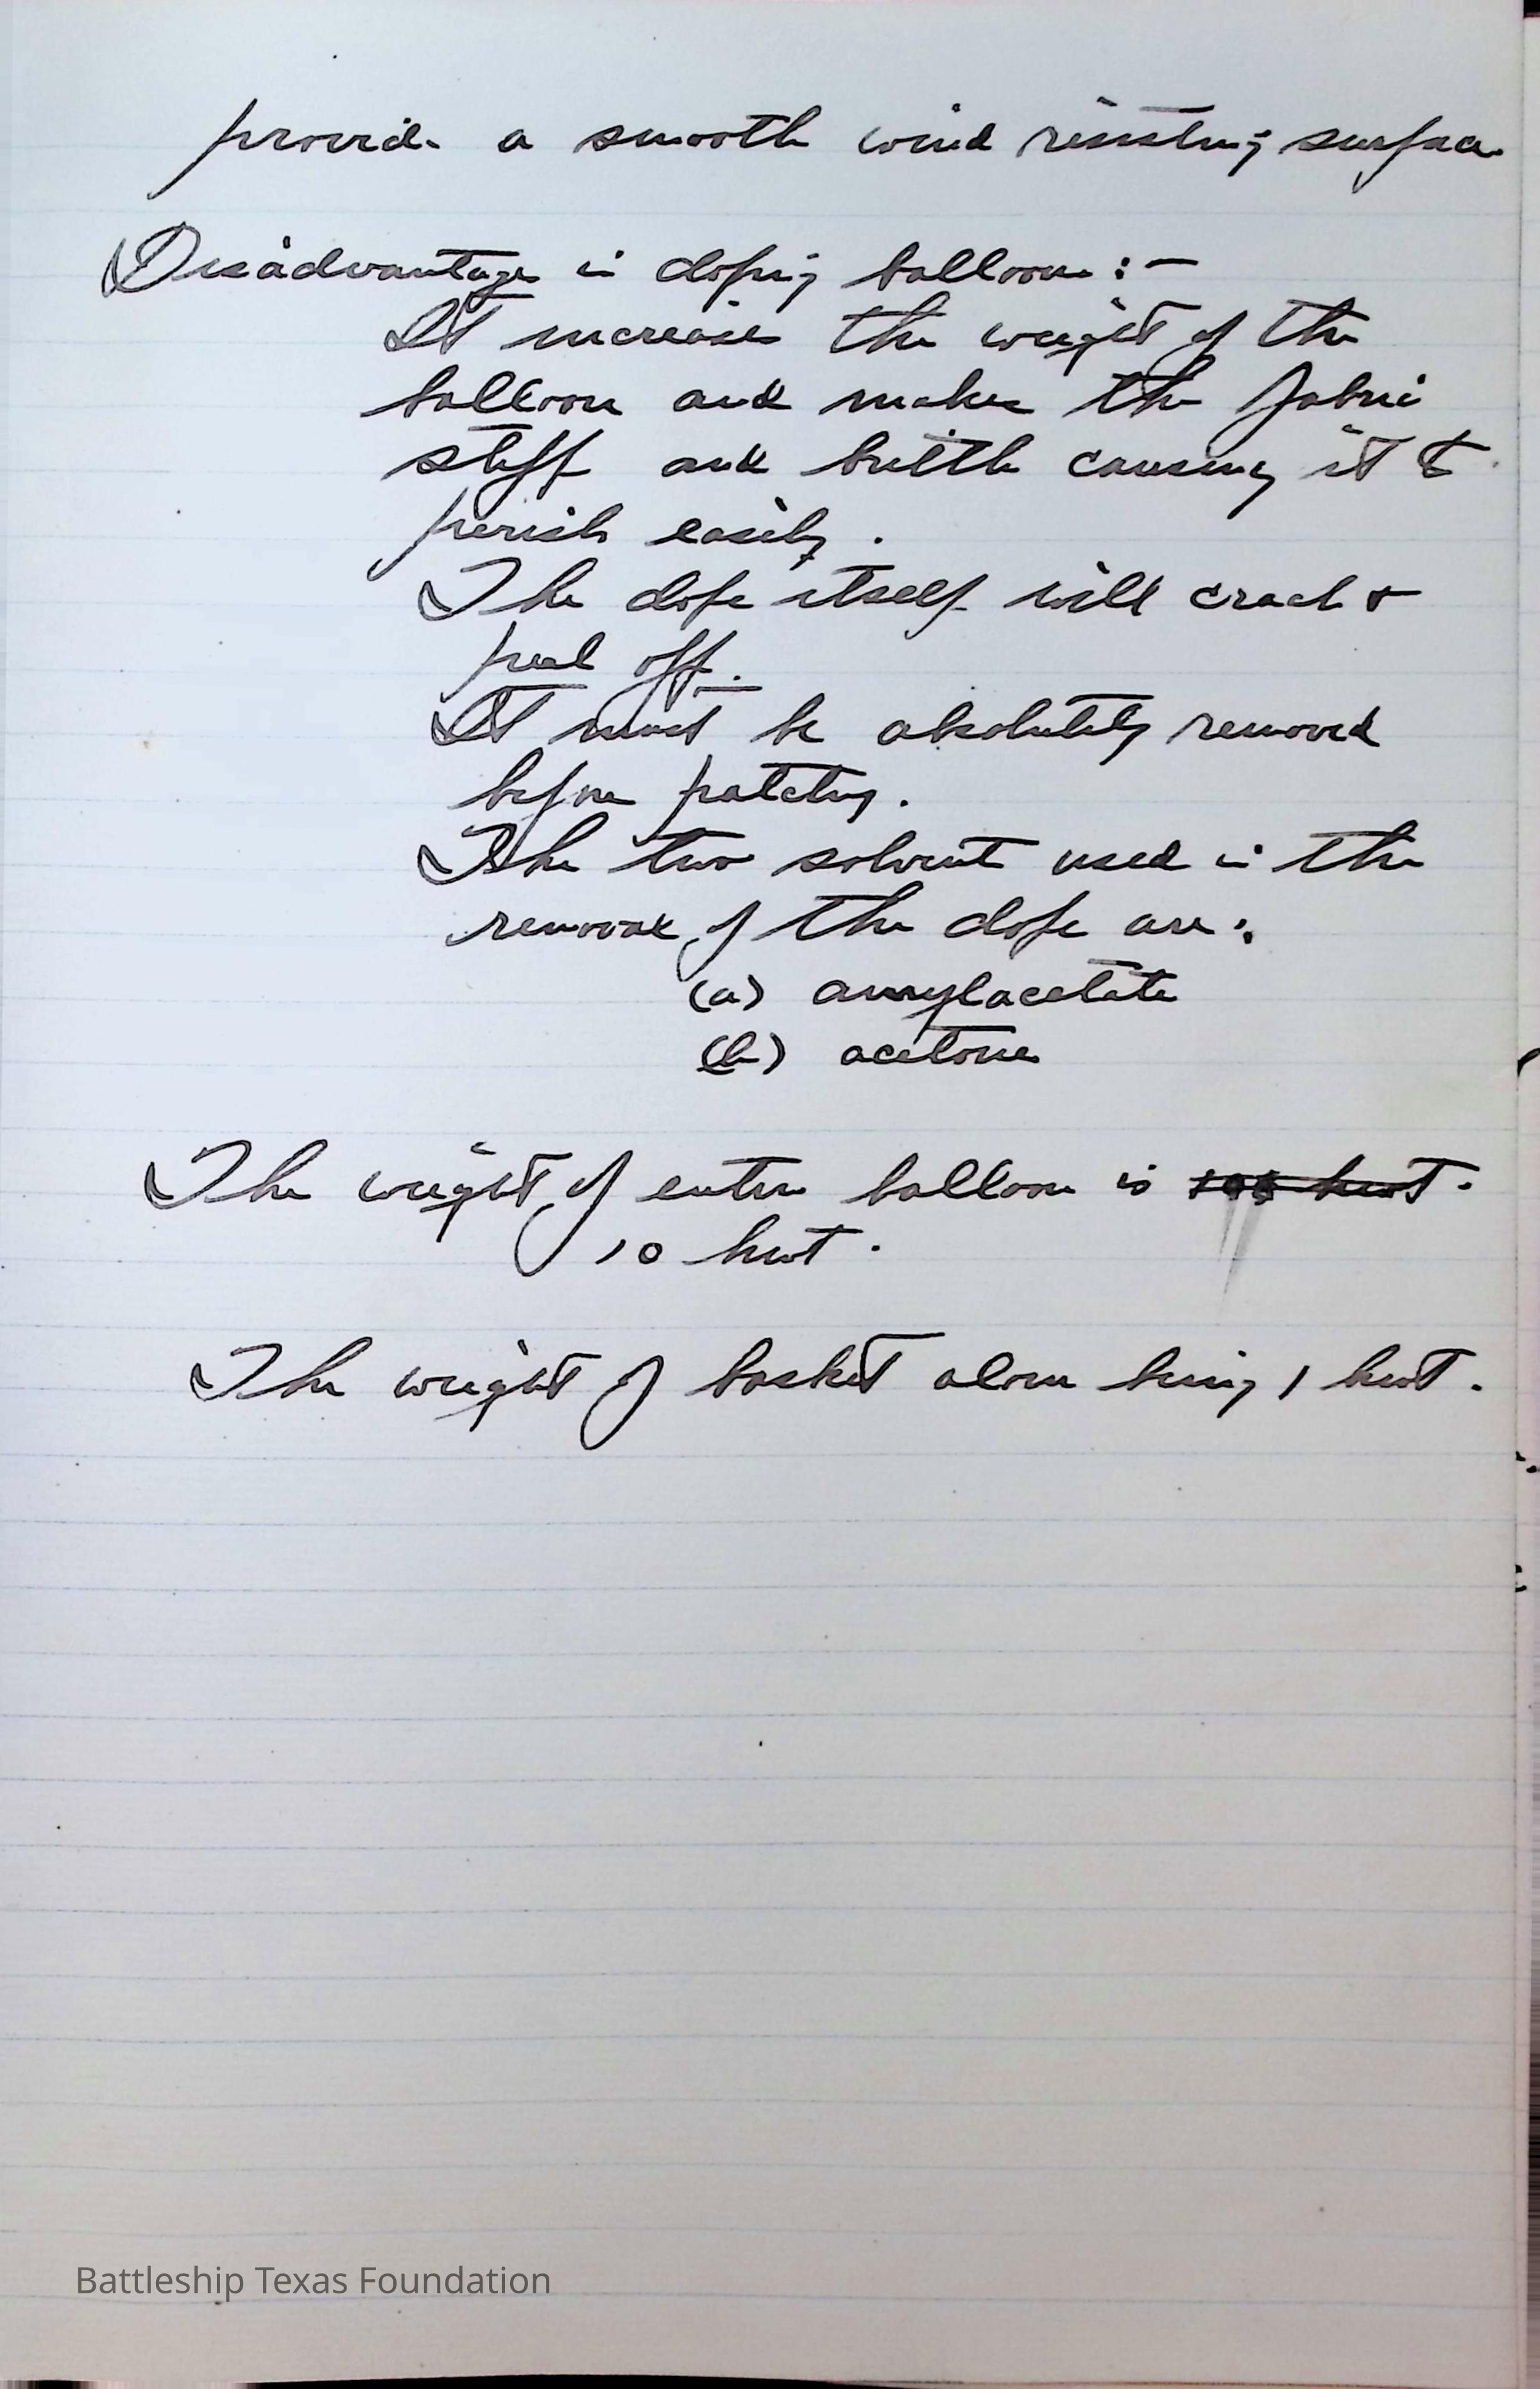 provide a smooth wind resisting surface
Disadvantages in doping balloons :-
It increases the weight of the
balloon and makes the fabric
stiff and brittle causing it to
perish easily.
The dope itself will crack &
peel off.
It must be absolutely removed
before patching.
The two solvents used in the
removal of the dope are:
(a) amylacetate
(b) acetone
The weight of entire balloon is hwt.
10 hwt.
The weight of basket alone being 1 hwt.
Battleship Texas Foundation